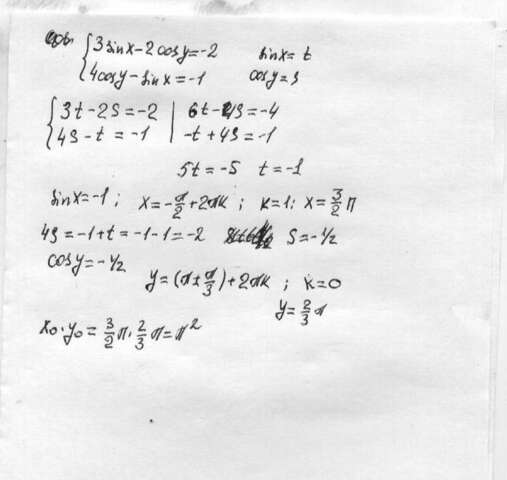 { 3 sin x - 2 cos y = -2    sin x = t
{ 4 cos y - sin x = -1    cos y = s
{ 3t - 2s = -2 | 6t - 4s = -4
{ 4s - t = -1 | -t + 4s = -1
5t = -5    t = -1
sin x = -1 ; x = -π/2 + 2πk ; k = 1: x = 3/2 π
4s = -1 + t = -1 - 1 = -2    s = -1/2
cos y = -1/2
y = (π ± π/3) + 2πk ; k = 0
y = 2/3 π
x₀ · y₀ = 3/2 π · 2/3 π = π²